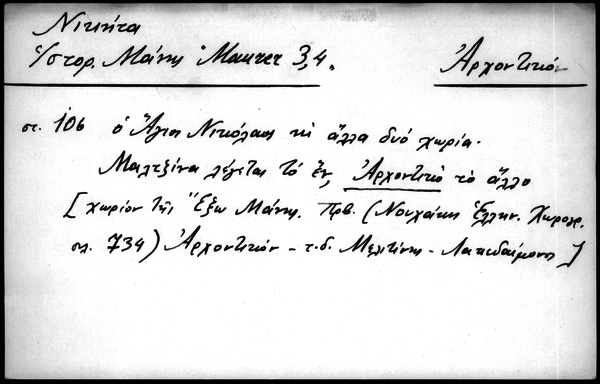 Νικήτα
Ἱστορ. Μάνης "Maurer 3,4„ Ἀρχοντικό
στ. 106 ὁ Ἅγιος Νικόλαος κὶ ἄλλα δυό χωρία.
Μαλτζίνα λέγεται τό ἕν, Ἀρχοντικὸ τὸ ἄλλο
[χωρίον τῆς Ἔξω Μάνης. Πρβ. (Νουχάκη Ἑλλην. Χωρογρ.
σελ. 734) Ἀρχοντικόν - τ.δ. Μελτίνης - Λακεδαίμονος]